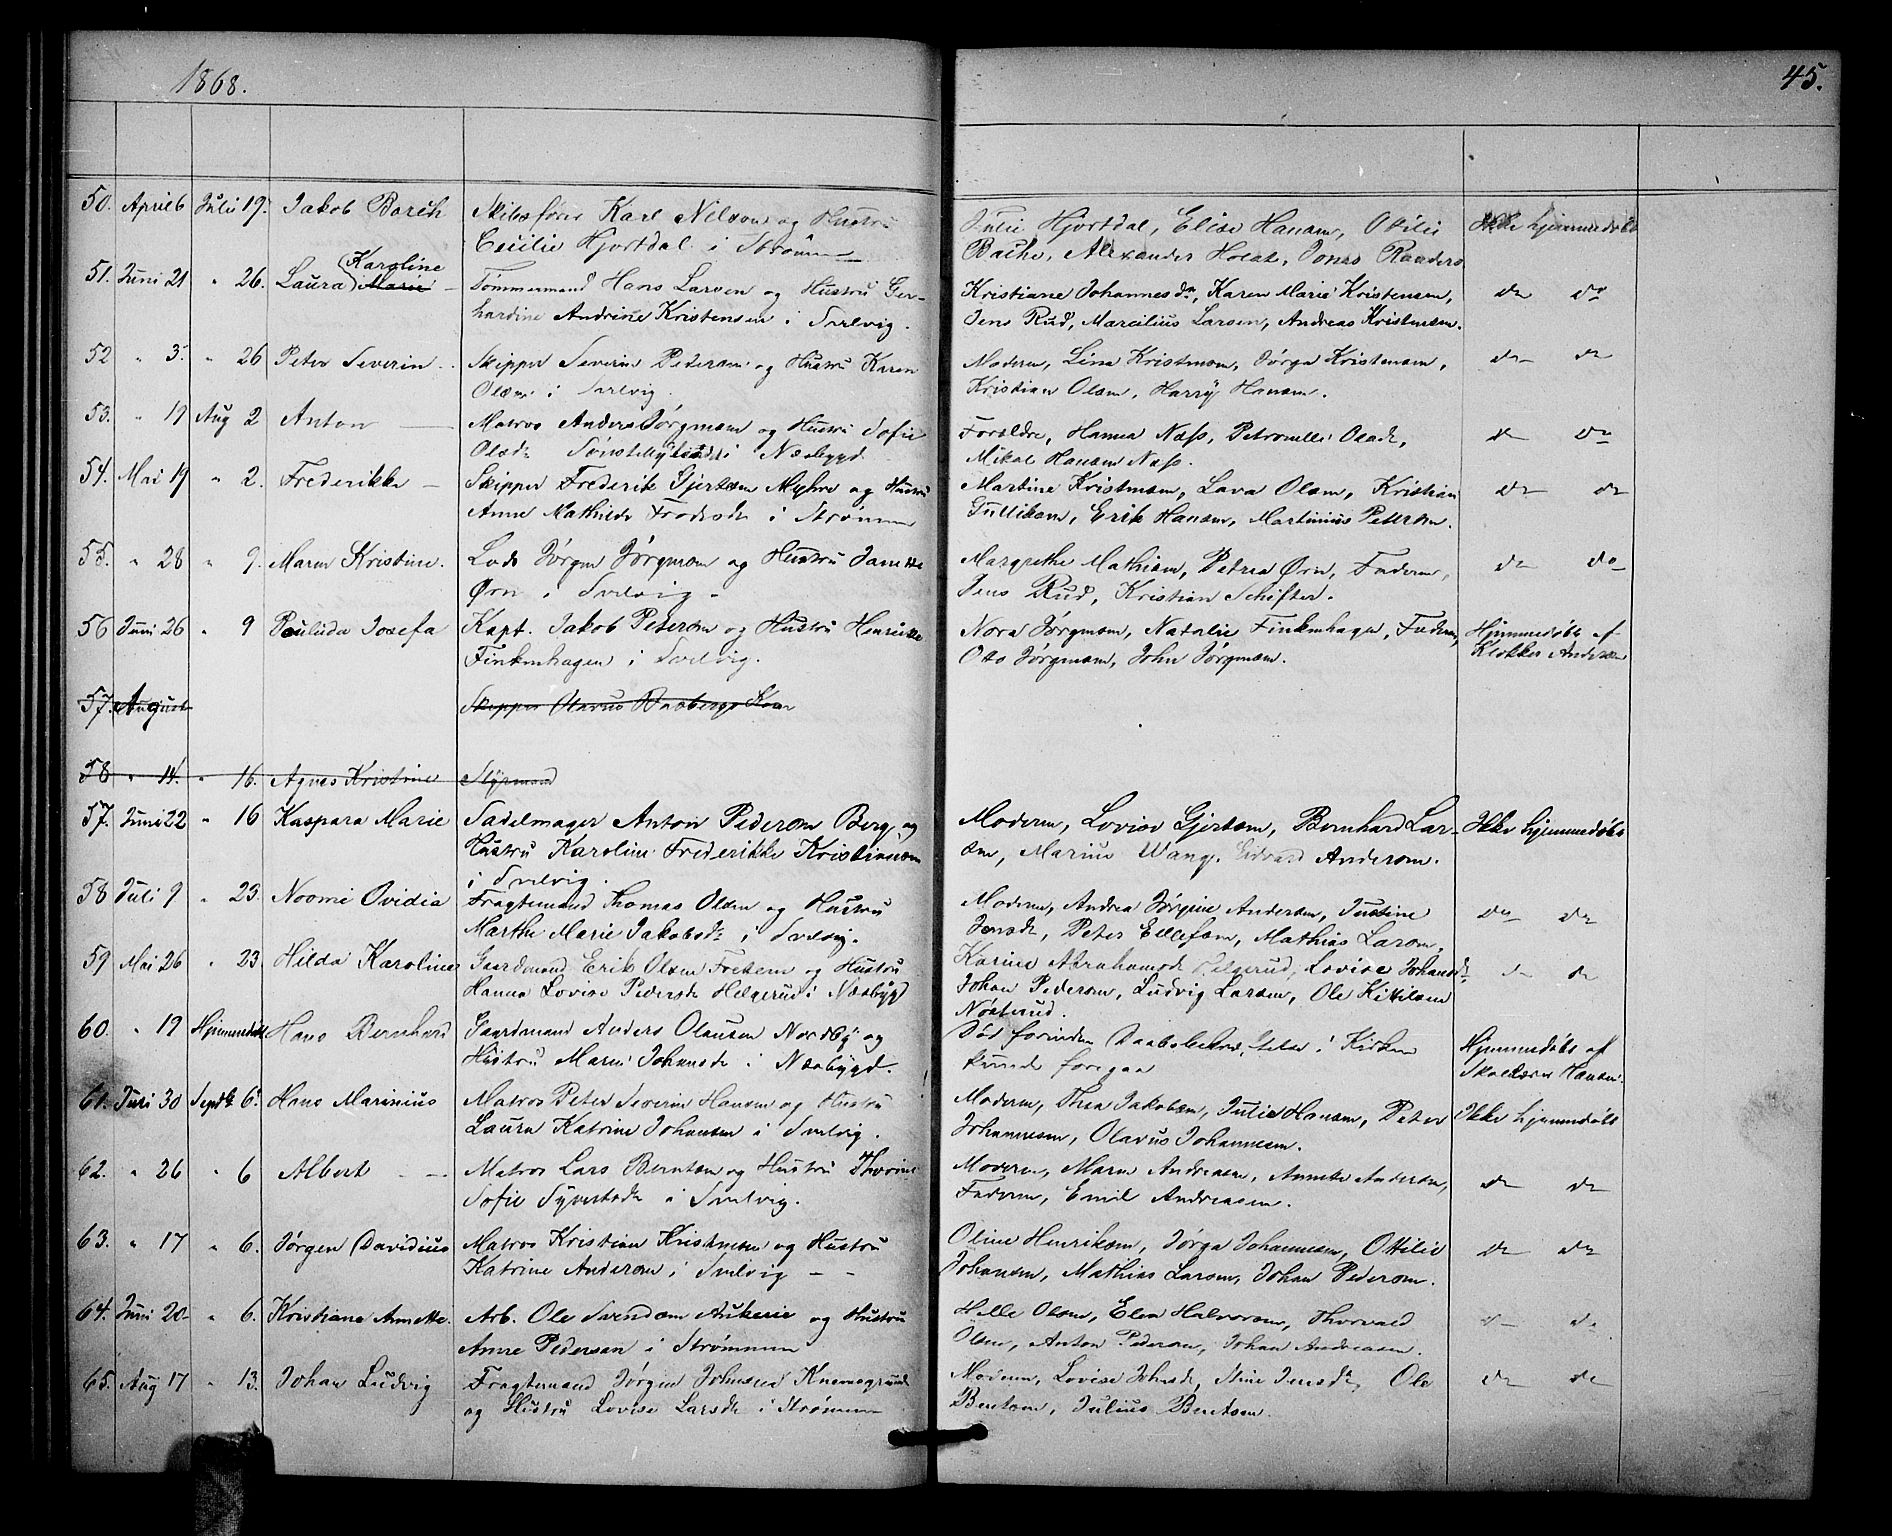 1868.
45.
50. April 6 Juli 19. Jakob Borch Skibsfører Karl Nilsen og Hustru
Cecilie Hjortdal i Strømm
Julie Hjortdal, Elise Hansen, Otilie Ikke hjemmedøbt
Bache, Alexander Holst, Jonas Randers
51. Juni 21 " 26. Laura Karoline Marie Tømmermand Hans Larsen og Hustru Ger-
hardine Andrine Kristensen i Svelvig.
Kristiane Johannesdr, Karen Marie Kristensen, do do
Jens Rud, Marcilius Larsen, Andreas Kristensen.
52 " 3. " 26 Peter Severin Skipper Severin Pedersen og Hustru Karen
Olsen i Svelvig.
Moderen, Lina Kristensen, Jørga Kristensen, do do
Kristian Olsen, Harry Hansen.
53. " 19 Aug 2 Anton Matros Anders Jørgensen og Hustru Sofie
Olsdr i Nesbygd
Forældre, Hanna Næss, Petronelle Olsdr, do do
Mikal Hansen Næss.
54. Mai 19 " 2. Frederikke Skipper Frederik Gjertsen Myhre og Hustru
Anne Mathilde Frodesdr i Strømmen
Martine Kristensen, Lava Olsen, Kristian do do
Gulliksen, Erik Hansen, Martinius Petersen.
55. " 28 " 9. Maren Kristine. Lods Jørgen Jørgensen og Hustru Janette
Ørn i Svelvig
Margrethe Mathisen, Petrea Ørn, Faderen, do do
Jens Rud, Kristian Schifter.
56 Juni 26 " 9 Pauluda Josefa Kapt. Jakob Petersen og Hustru Henrikke
Finkenhagen i Svelvig.
Nora Jørgensen, Natalie Finkenhagen, Faderen, Hjemmedøbt af
Oto Jørgensen, John Jørgensen. Klokker Andersen
57. August Skipper Olavus Kone
58 " 14. " 16. Agnes Kristine Styrmand
57. Juni 22 " 16 Kaspara Marie Sadelmager Anton Pedersen Berg og
Hustru Karoline Frederikke Kristiansen
i Svelvig.
Moderen, Lovise Gjertsen, Bernhard Lar- Ikke hjemmedøbt
sen, Marius Wang, Edvard Andersen.
58 Juli 9 " 23. Noomi Ovidia Fragtemand Thomas Olsen og Hustru
Marthe Marie Jakobsdr i Svelvig.
Moderen, Andrea Jørgine Andersen, Justine do do
Jensdr, Peter Ellefsen, Mathias Larsen.
59 Mai 26 " 23 Hilda Karoline Gaardmand Erik Olsen Fretem og Hustru
Hanna Lovise Pedersdr Helgerud i Nesbygd
Karine Abrahamsdr Helgerud, Lovise Johansdr do do
Johan Pedersen, Ludvig Larsen, Ole Kittilsen
Nøsterud.
60. " 19 Hjemmedøbt Hans Bernhard Gaardmand Anders Olausen Nordby og
Hustru Maren Johansdr i Nesbygd.
Død forinden Daabsbekræftelse i Kirken Hjemmedøbt af
kunde foregaa Skolelærer Hansen.
61. Juni 30 Septbr 6. Hans Marinius Matros Peter Severin Hansen og Hustru
Laura Katrine Johansen i Svelvig.
Moderen, Thea Jakobsen, Julie Hansen, Peter Ikke hjemmedøbt
Johannesen, Olavus Johannesen.
62. " 26 " 6 Albert Matros Lars Berntsen og Hustru Thorine
Sofie Syvertsdr i Svelvig.
Moderen, Maren Andreasen, Annete Andersen, do do
Faderen, Emil Andreasen.
63. " 17 " 6. Jørgen Davidius Matros Kristian Kristensen og Hustru
Katrine Andersen i Svelvig
Oline Henriksen, Jørga Johannesen, Ottilie do do
Johansen, Mathias Larsen, Johan Pedersen.
64. Juni 20 " 6. Kristiane Annette. Arb. Ole Svendsen Aukerie og Hustru
Anne Pedersen i Strømmen
Helle Olsen, Elen Halvorsen, Thorvald do do
Olsen, Anton Pedersen, Johan Andreasen.
65. Aug 17 " 13. Johan Ludvig Fragtemand Jørgen Johnsen Knemsgrund
og Hustru Lovise Larsdr i Strømmen
Moderen, Lovise Johnsdr, Nine Jensdr, Ole do do
Bentsen, Julius Bentsen.